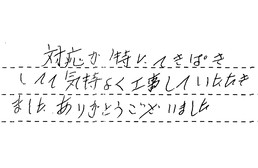 対応が特にてきぱき
してて気持よく工事していただき
ました ありがとうございました